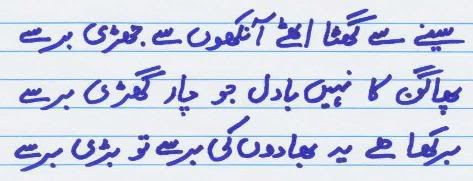 سینے سے گھٹا اٹھے آنکھوں سے جھڑی برسے
پھاگن کا نہیں بادل جو چار گھڑی برسے
برکھا ہے یہ بھادوں کی برسے تو بڑی برسے